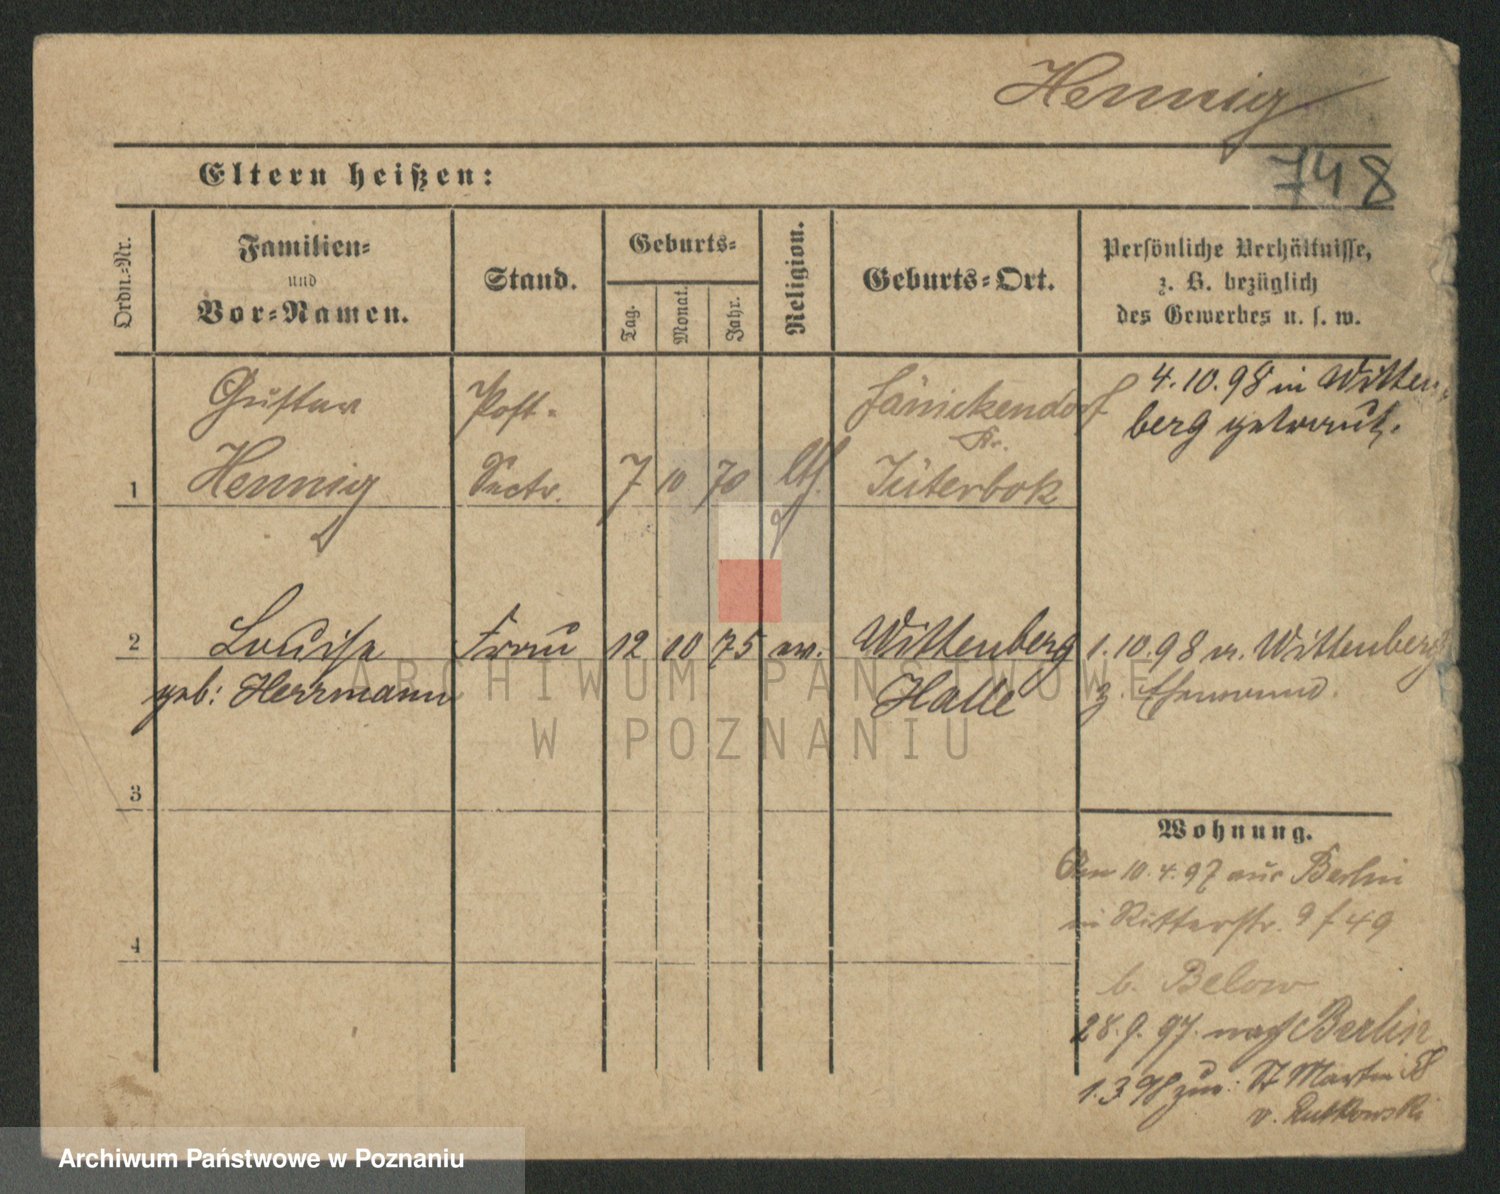 Hennig
748
Eltern heißen:
Ordn.-Nr.
Familien-
und
Vor-Namen.
Stand.
Geburts-
Tag.
Monat.
Jahr.
Religion.
Geburts-Ort.
Persönliche Verhältnisse,
z. B. bezüglich
des Gewerbes u. s. w.
Gustav
Hennig
Post-
Sectr.
1
7 10 70
Jänickendorf
Kr.
Jüterbok
4.10.98 in Witten-
berg getraut.
2
Louise
geb: Herrmann
Frau
12 10 75 ev.
Wittenberg
Halle
1.10.98 v. Wittenberg
z. Ehemann.
3
4
Wohnung.
10.4.97 aus Berlin
in Ritterstr. 9 49
b. Below
28.9.97. nach Berlin
1.3.98 zur: St Martin 58
v. Rutkowski
ARCHIWUM PAŃSTWOWE
W POZNANIU
Archiwum Państwowe w Poznaniu